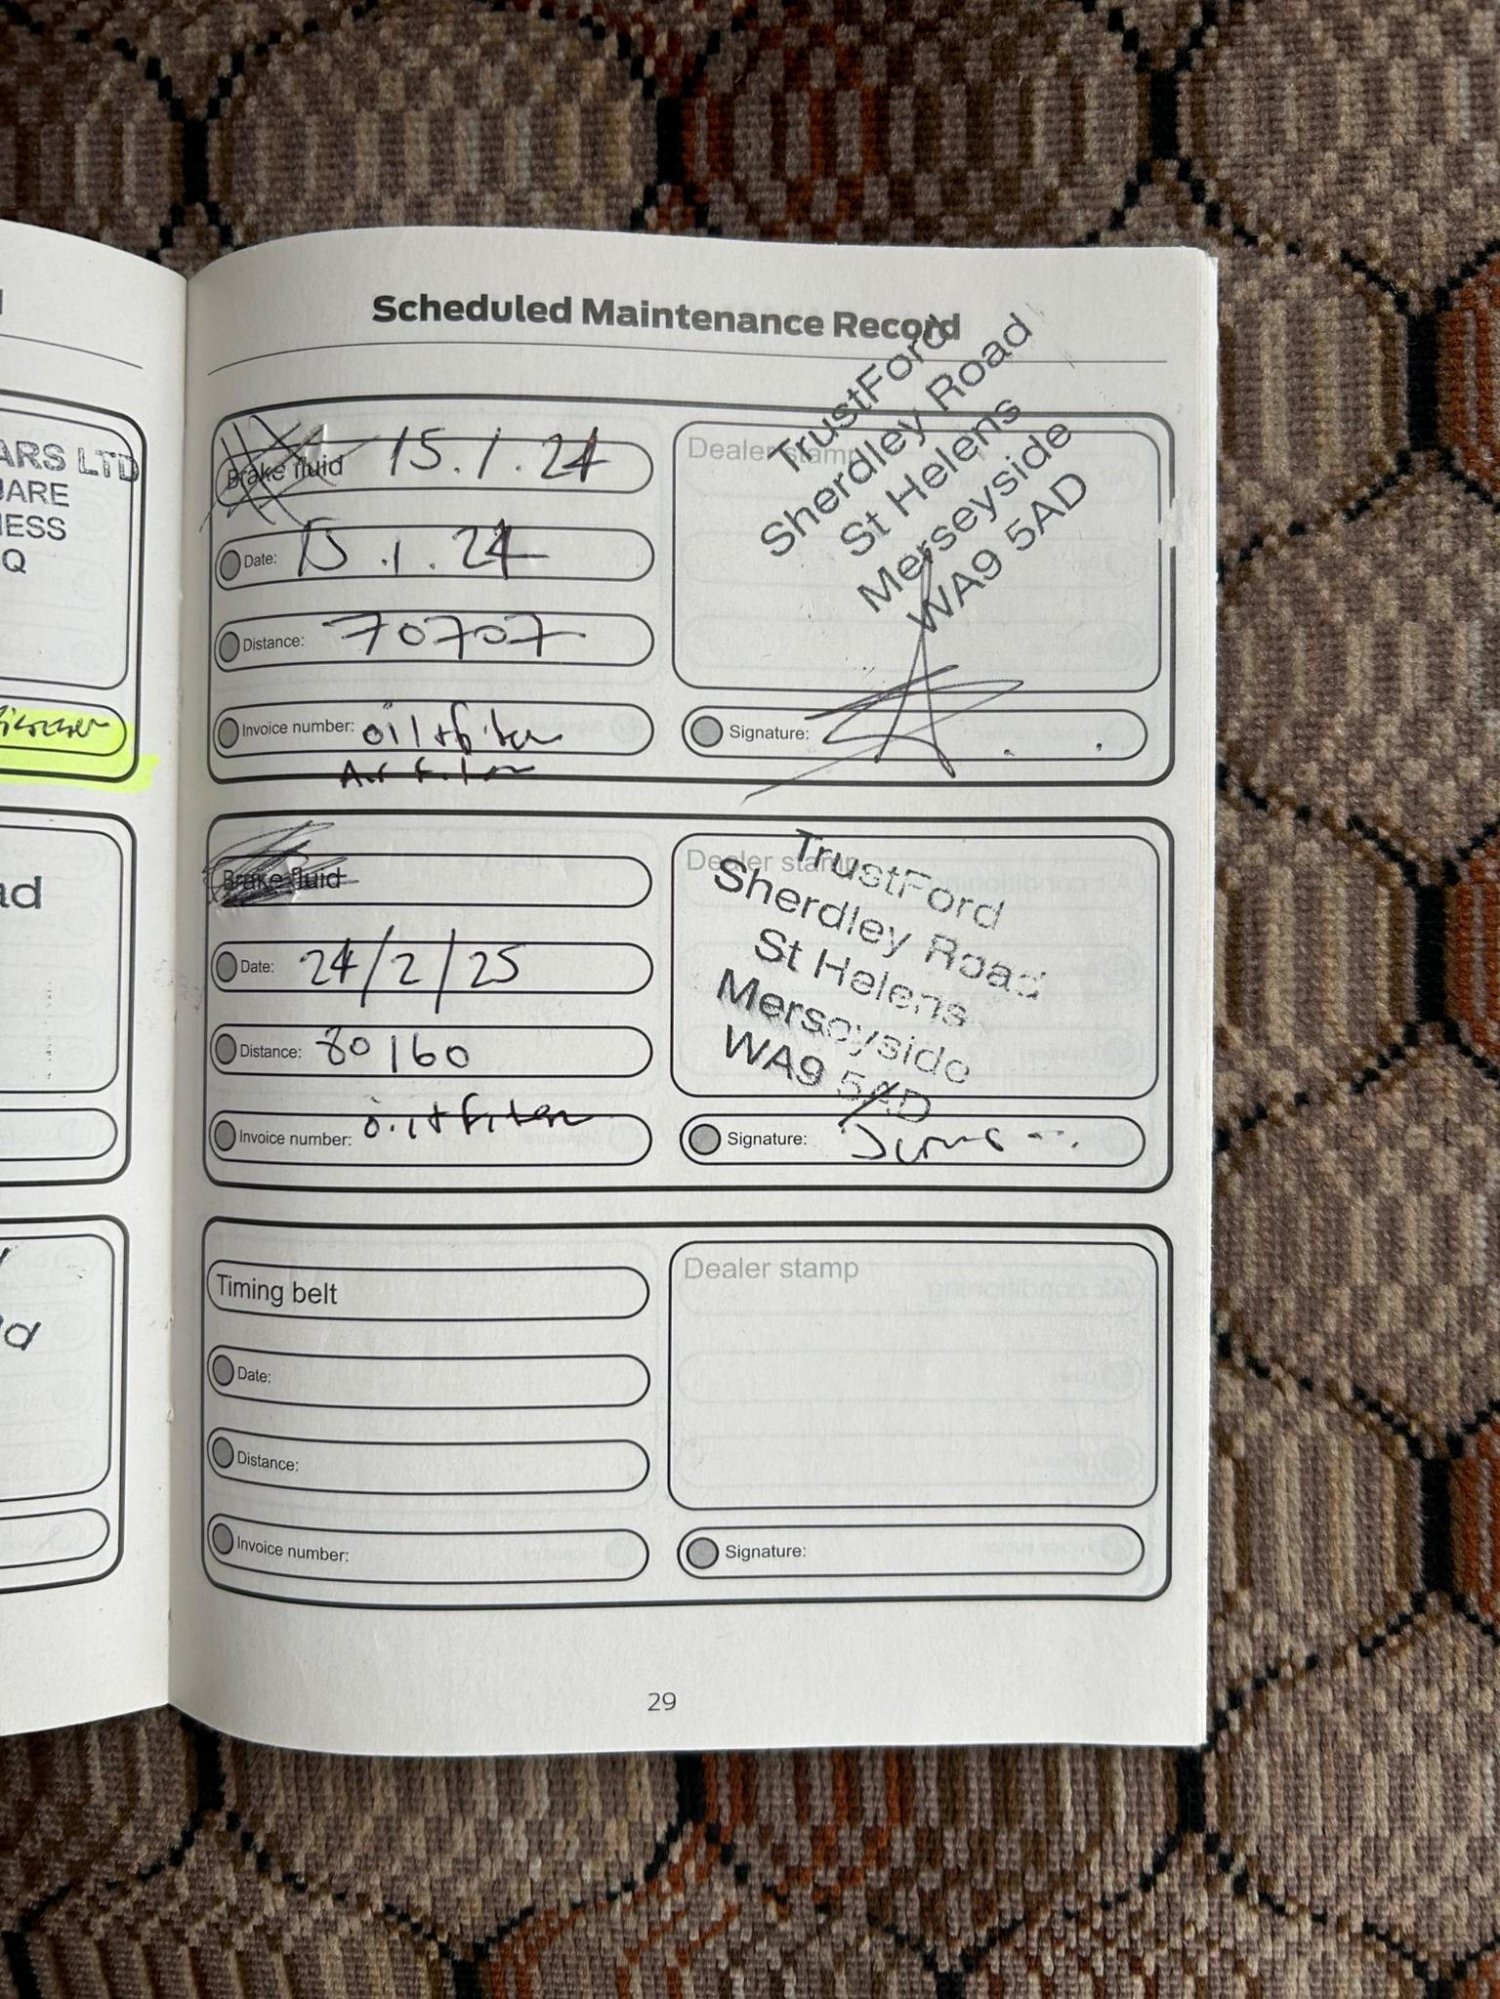 ARS LTD
UARE
NESS
Q
ad
Scheduled Maintenance Record
Brake fluid 15.1.24
Date: 15.1.24
Distance: 70707
Invoice number: oil+filter
Air Filter
Dealer stamp
TrustFord
Sherdley Road
St Helens
Merseyside
WA9 5AD
Signature:
Brake fluid
Date: 24/2/25
Distance: 80160
Invoice number: oil+filter
Dealer stamp
TrustFord
Sherdley Road
St Helens
Merseyside
WA9 5AD
Signature:
Timing belt
Date:
Distance:
Invoice number:
Dealer stamp
Signature:
29